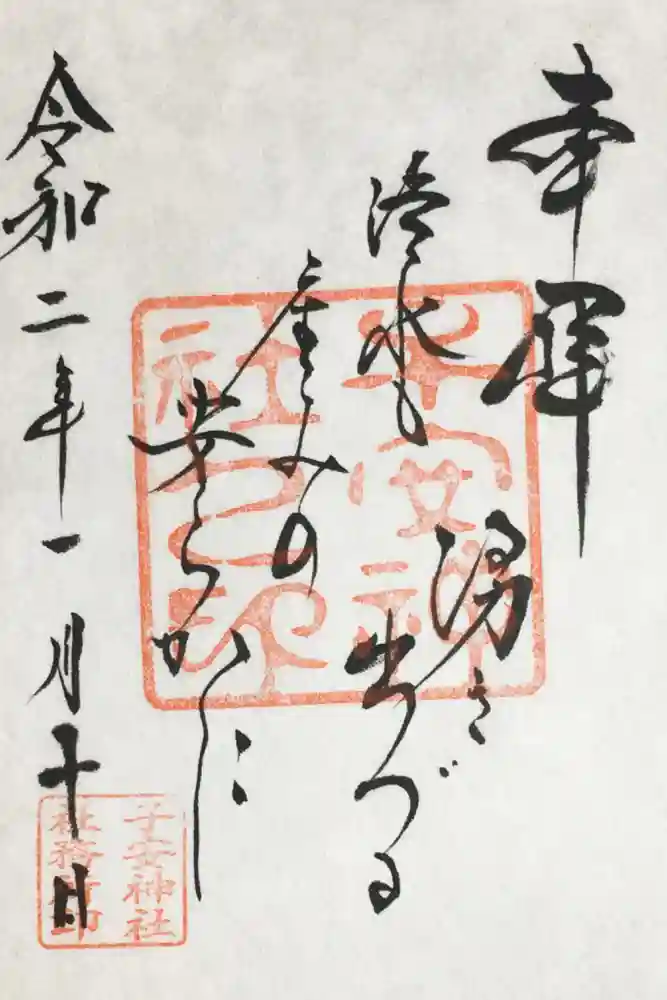 奉拝
湧き
出づる
清水も
産みの
安らかに
令和二年一月十日
子安神
社之印
子安神社
社務所印